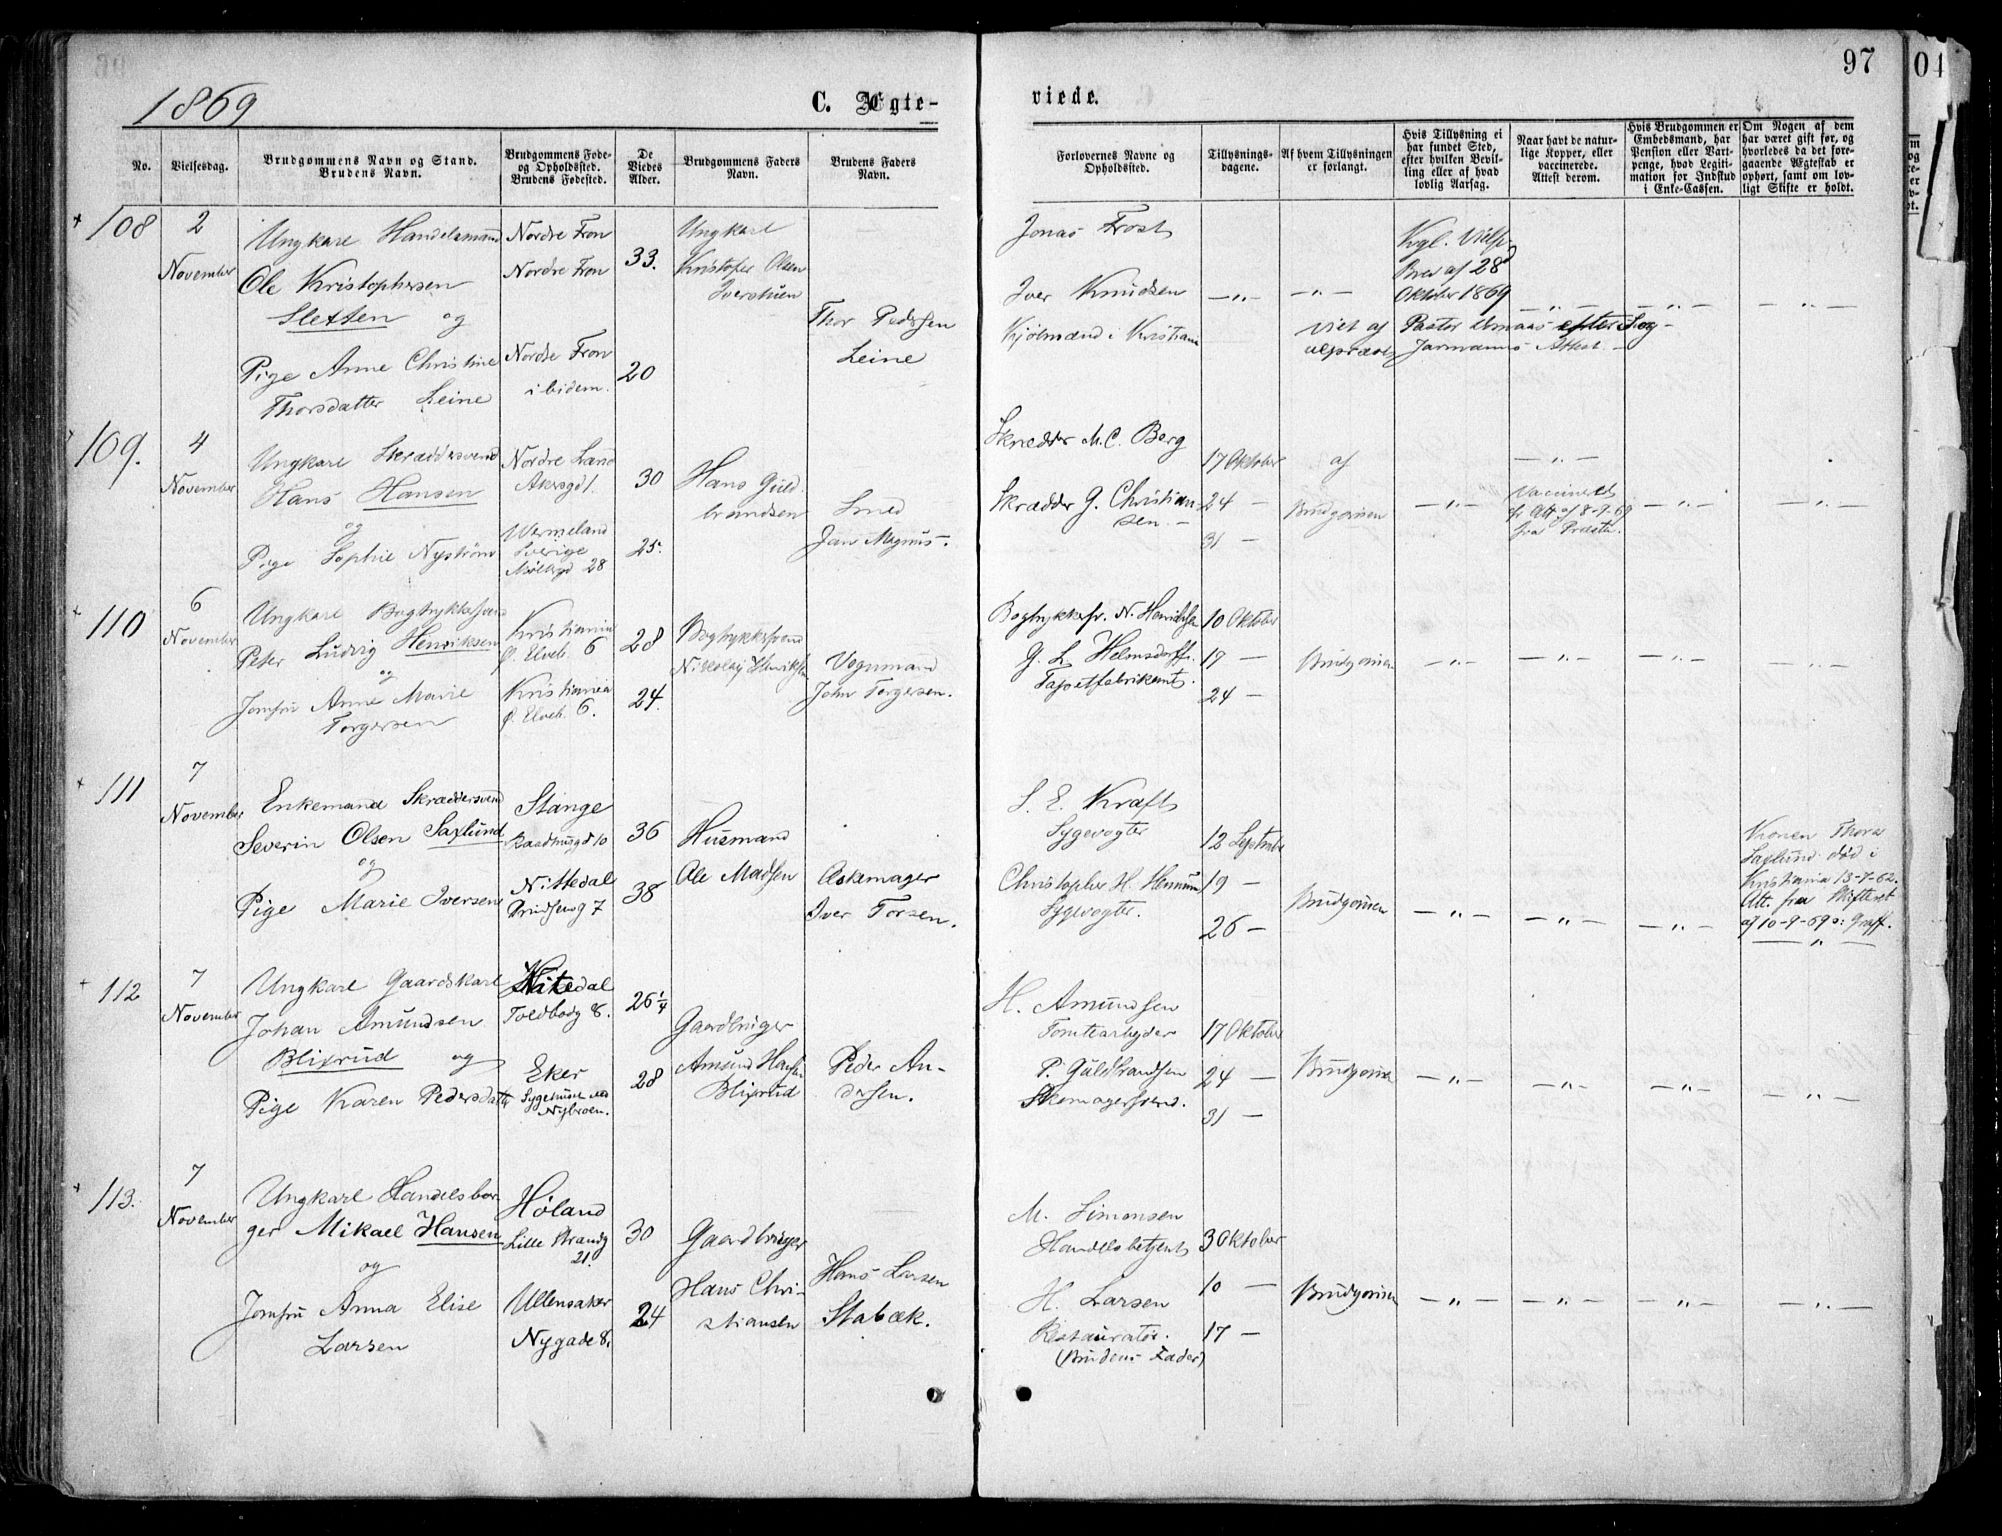 1869
C. Ægte-
viede.
97
No.
Vielsesdag.
Brudgommens Navn og Stand.
Brudens Navn.
Brudgommens Føde-
og Opholdssted.
Brudens Fødested.
De
Viedes
Alder.
Brudgommens Faders
Navn.
Brudens Faders
Navn.
Forlovernes Navne og
Opholdssted.
Tillysnings-
dagene.
Af hvem Tillysningen
er forlangt.
Hvis Tillysning ei
har fundet Sted,
efter hvilken Bevil-
ling eller af hvad
lovlig Aarsag.
Naar havt de natur-
lige Kopper, eller
vaccinerede.
Attest derom.
Hvis Brudgommen er
Embedsmand, har
Pension eller Vart-
penge, hvad Legiti-
mation for Indskud
i Enke-Cassen.
Om Nogen af dem
har været gift før, og
hvorledes da det fore-
gaaende Ægteskab er
ophørt, samt om lov-
ligt Skifte er holdt.
108
2
November
Ungkarl Handelsmand
Ole Kristophersen
Sletten og
Pige Anne Christine
Thorsdatter Leine
Nordre Fron
Nordre Fron
Nordre Fron
ibidem.
33.
20
Ungkarl
Kristofer Olsen
Thor Pedersen
Leine
Jonas Frost
Iver Knudsen
Kjølmænd i Kristiania
Kgl.
Brev af 28
Oktober 1869
Viet af Pastor efter Sog-
Attest
109.
4
November
Ungkarl Skræddersvend
Hans Hansen
og
Pige Sophie Nystrøm
Nordre Land
Akersgd 1.
Wermeland
Sverige
Møllergd 28
30
25.
Hans Guld-
brandsen
Smed
Jan Magnus.
Skrædder M. C. Berg
Skrædder G. Christian-
sen.
17 Oktober
24 —
31 —
af
Brudgomen
Vaccineret
Att. af 8-9-69
fra Præsten.
110
6
November
Ungkarl Bogtrykkersvend
Peter Ludvig Henriksen
og
Jomfru Anne Marie
Torgersen
Kristiania
Ø. Elveb. 6
Kristiania
Ø. Elveb. 6.
28
24.
Bogtrykkersvend
Nikolaj Henriksen
Vognmand
John Torgersen.
Bogtrykkersv. N. Henriksen
G. L. Helmsdorff.
Tapetfabrikant.
10 Oktober
17 —
24 —
Brudgomen
111
7
November
Enkemand Skræddersvend
Severin Olsen Saxlund
og
Pige Marie Iversen
Stange
Raadhusgd 10
Nittedal
Prindsensg 7
36
38
Husmand
Ole Madsen
Askemager
Iver Torsen.
S. E. Kraft
Sygevogter
Christopher H. Hennum
Sygevogter.
12 Septembr
19 —
26 —
Brudgomen
Konen Thora
Saxlund død i
Kristiania 13-7-62.
Att. fra Skifteret
af 10-9-69 s: Graff.
112
7
November
Ungkarl Gaardskarl
Johan Amundsen
Blixrud og
Pige Karen Pedersdatter
Nitedal
Toldbodg 8.
Eker
Sygehuset ved
Nybroen.
26 1/4
28
Gaardbruger
Amund Hansen
Blixrud
Peder An-
dersen.
H. Amundsen
Tomtearbejder
P. Guldbrandsen
Skomagersvend.
17 Oktober
24 —
31 —
Brudgomen
113.
7
November
Ungkarl Handelsbor-
ger Mikael Hansen
og
Jomfru Anna Elise
Larsen
Høland
Lille Strandg
21.
Ullensaker
Nygade 8.
30
24
Gaardbruger
Hans Chri-
stiansen
Hans Larsen
Stabæk.
M. Simensen
Handelsbetjent
H. Larsen
Restauratør.
(Brudens Fader)
3 Oktober
10 —
17 —
Brudgomen